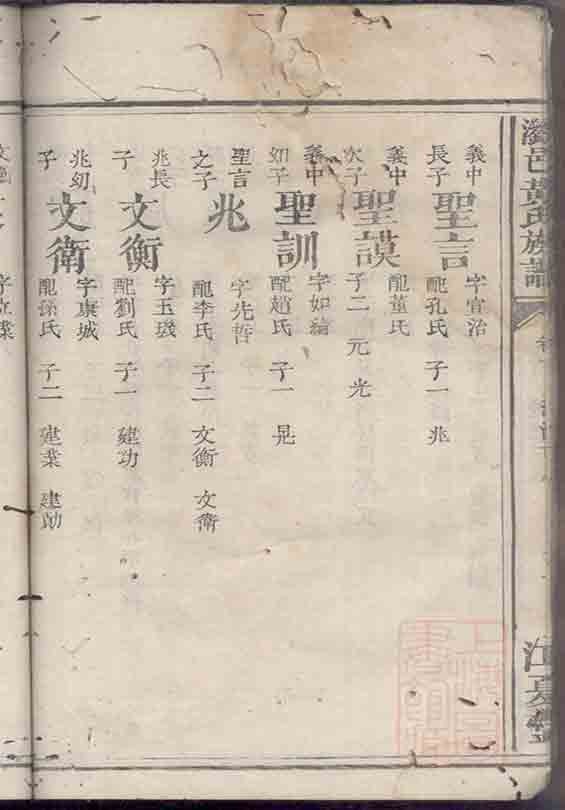 邑黃氏族譜
江夏堂
義中
長子 聖言 字宣治
配孔氏 子一 兆
義中
次子 聖謨 配董氏
子二 元 光
義中
幼子 聖訓 字如綸
配趙氏 子一 晃
聖言
之子 兆 字光哲
配李氏 子二 文衡 文衛
兆長
子 文衡 字玉璣
配劉氏 子一 建功
兆幼
子 文衛 字康城
配孫氏 子二 建業 建勛
字立業